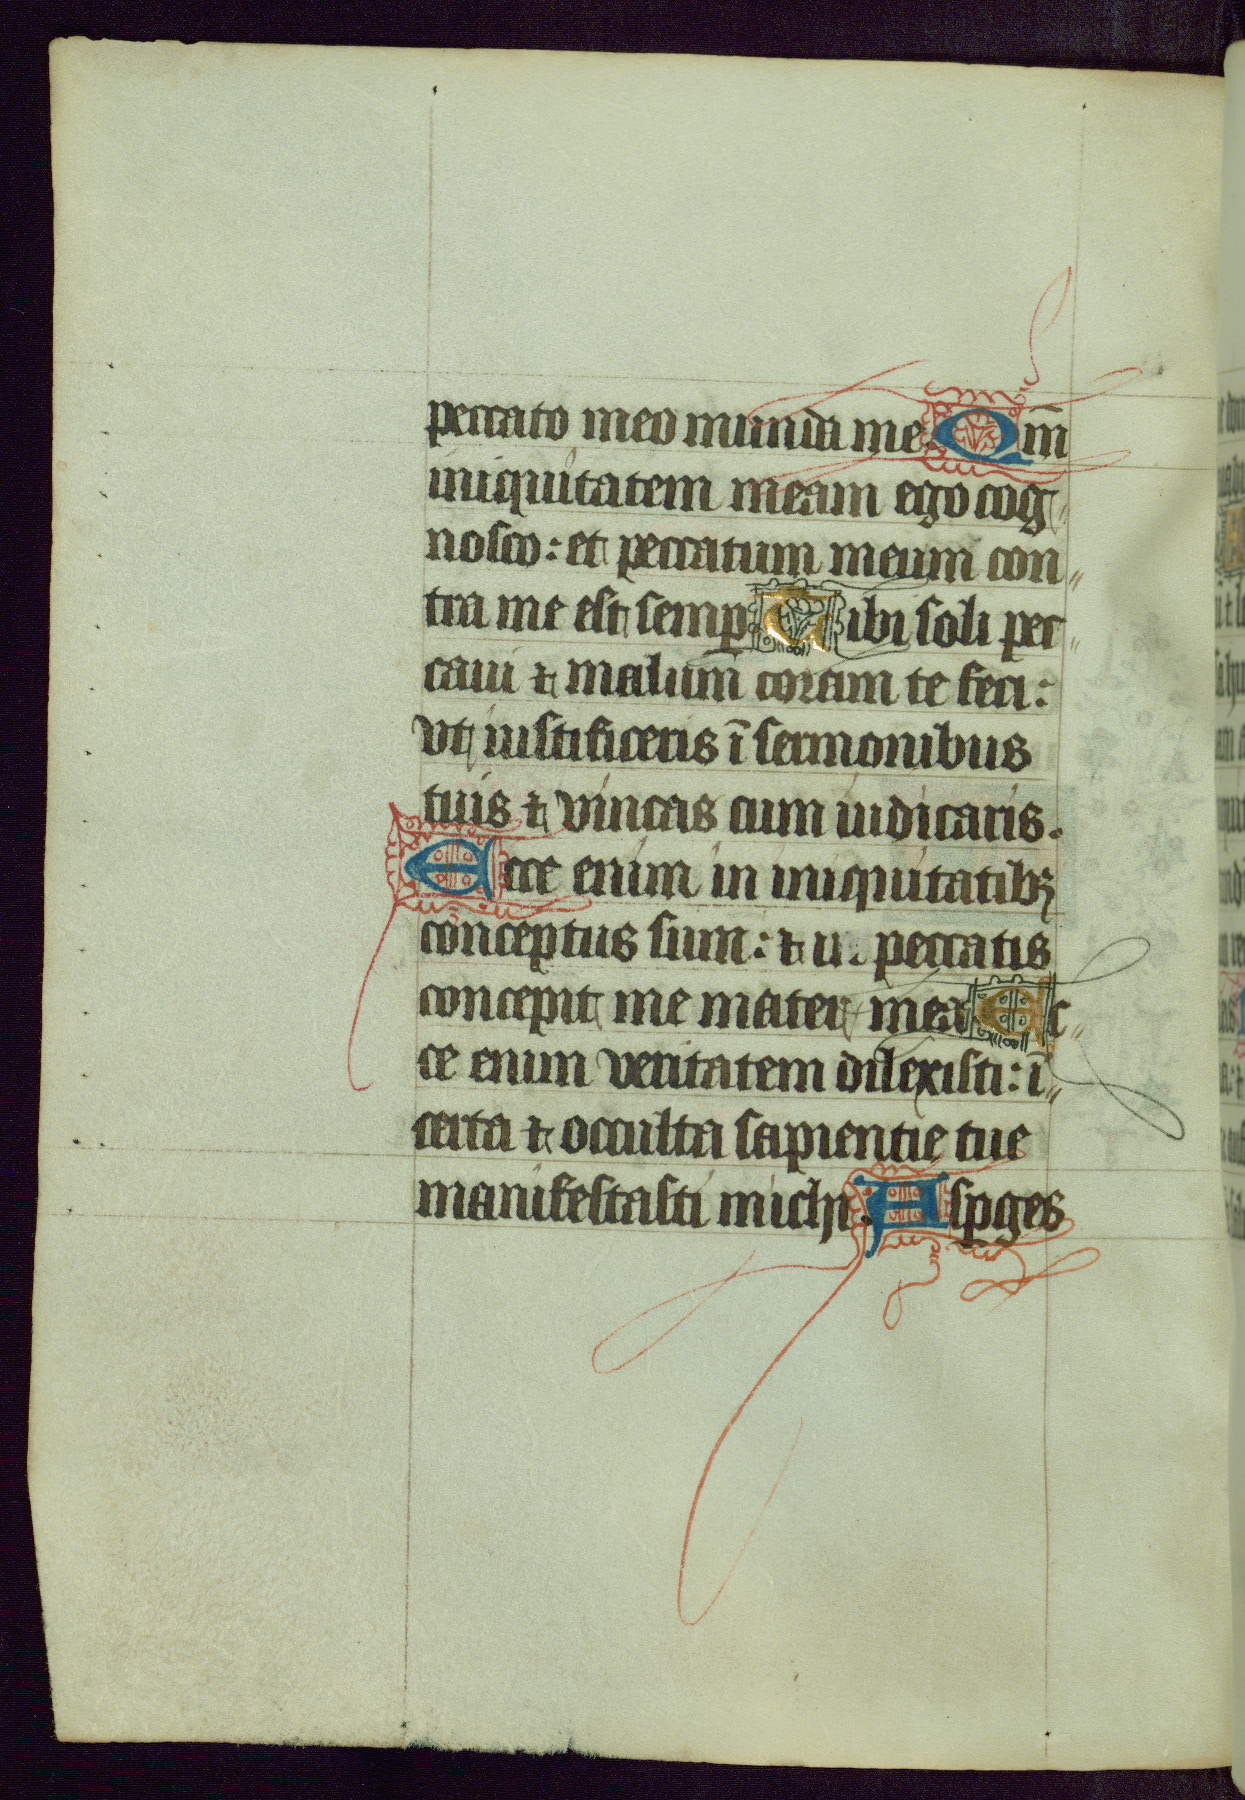 peccato meo munda me Qm̄
iniquitatem meam ego cog
nosco: et peccatum meum con
tra me est semꝑ Tibi soli pec
caui ⁊ malum coram te feci:
vt iustificeris ī sermonibus
tuis ⁊ vincas cum iudicaris.
Ecce enim in iniquitatibꝫ
conceptus sum: ⁊ in peccatis
concepit me mater mea Ec
ce enim veritatem dilexisti: ī
certa ⁊ occulta sapientie tue
manifestasti michi. Asꝑges